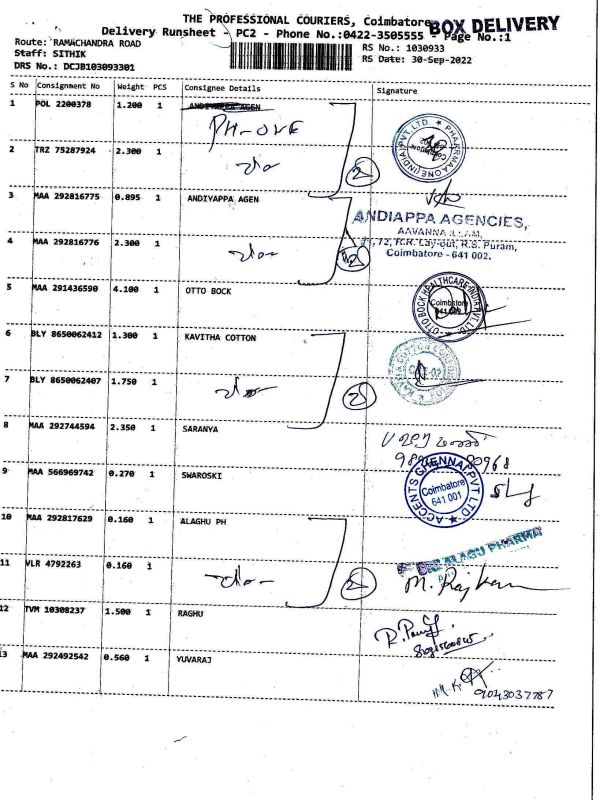 THE PROFESSIONAL COURIERS, Coimbatore
BOX DELIVERY
Delivery Runsheet - PC2 - Phone No.:0422-3505555 Page No.:1
Route: RAMACHANDRA ROAD
RS No.: 1030933
Staff: SITHIK
RS Date: 30-Sep-2022
DRS No.: DCJB103093301
S No Consignment No Weight PCS Consignee Details Signature
1 POL 2200378 1.200 1 ANDIYAPPA AGEN
PH-ONE
2 TRZ 75287924 2.300 1
2
PHARRMAA ONE (INDIA) PVT. LTD.
3 MAA 292816775 0.895 1 ANDIYAPPA AGEN
ANDIAPPA AGENCIES,
4 MAA 292816776 2.300 1
2
72, R.K. Lay-out, R.S. Puram,
Coimbatore - 641 002.
5 MAA 291436590 4.100 1 OTTO BOCK
OTTO BOCK HEALTHCARE INDIA PVT. LTD.
Coimbatore
6 BLY 8650062412 1.300 1 KAVITHA COTTON
7 BLY 8650062407 1.750 1
2
8 MAA 292744594 2.350 1 SARANYA
9 MAA 566969742 0.270 1 SWAROSKI
ACCENTS CHENNAI PVT LTD
Coimbatore
641 001
10 MAA 292817629 0.160 1 ALAGHU PH
ALAGU PHARMA
11 VLR 4792263 0.160 1
2
M. Rajkum
12 TVM 10308237 1.500 1 RAGHU
13 MAA 292492542 0.560 1 YUVARAJ
9043037787